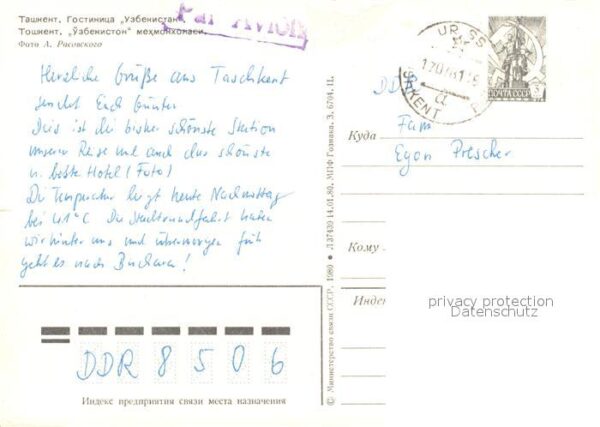 Ташкент, Гостиница „Узбекистан“.
Par Avion
Тошкент, „Ўзбекистон“ меҳмонхонаси.
Фото А. Рясовского
Herzliche Grüße aus Taschkent
sendet Euch Günter.
Dies ist die bisher schönste Station
unserer Reise und auch das schönste
u. beste Hotel (Foto)
Die Temperatur liegt heute Nachmittag
bei 41°C Die Stadtrundfahrt haben
wir hinter uns und übermorgen früh
geht es nach Buchara!
DDR 8506
Индекс предприятия связи места назначения
© Министерство связи СССР, 1980 ● Л 37439 14.01.80. МПФ Гознака. З. 6704. Ц.
ПОЧТА СССР
3
DD
Куда
Fam
Egon Prescher
Кому
Индек
privacy protection
Datenschutz